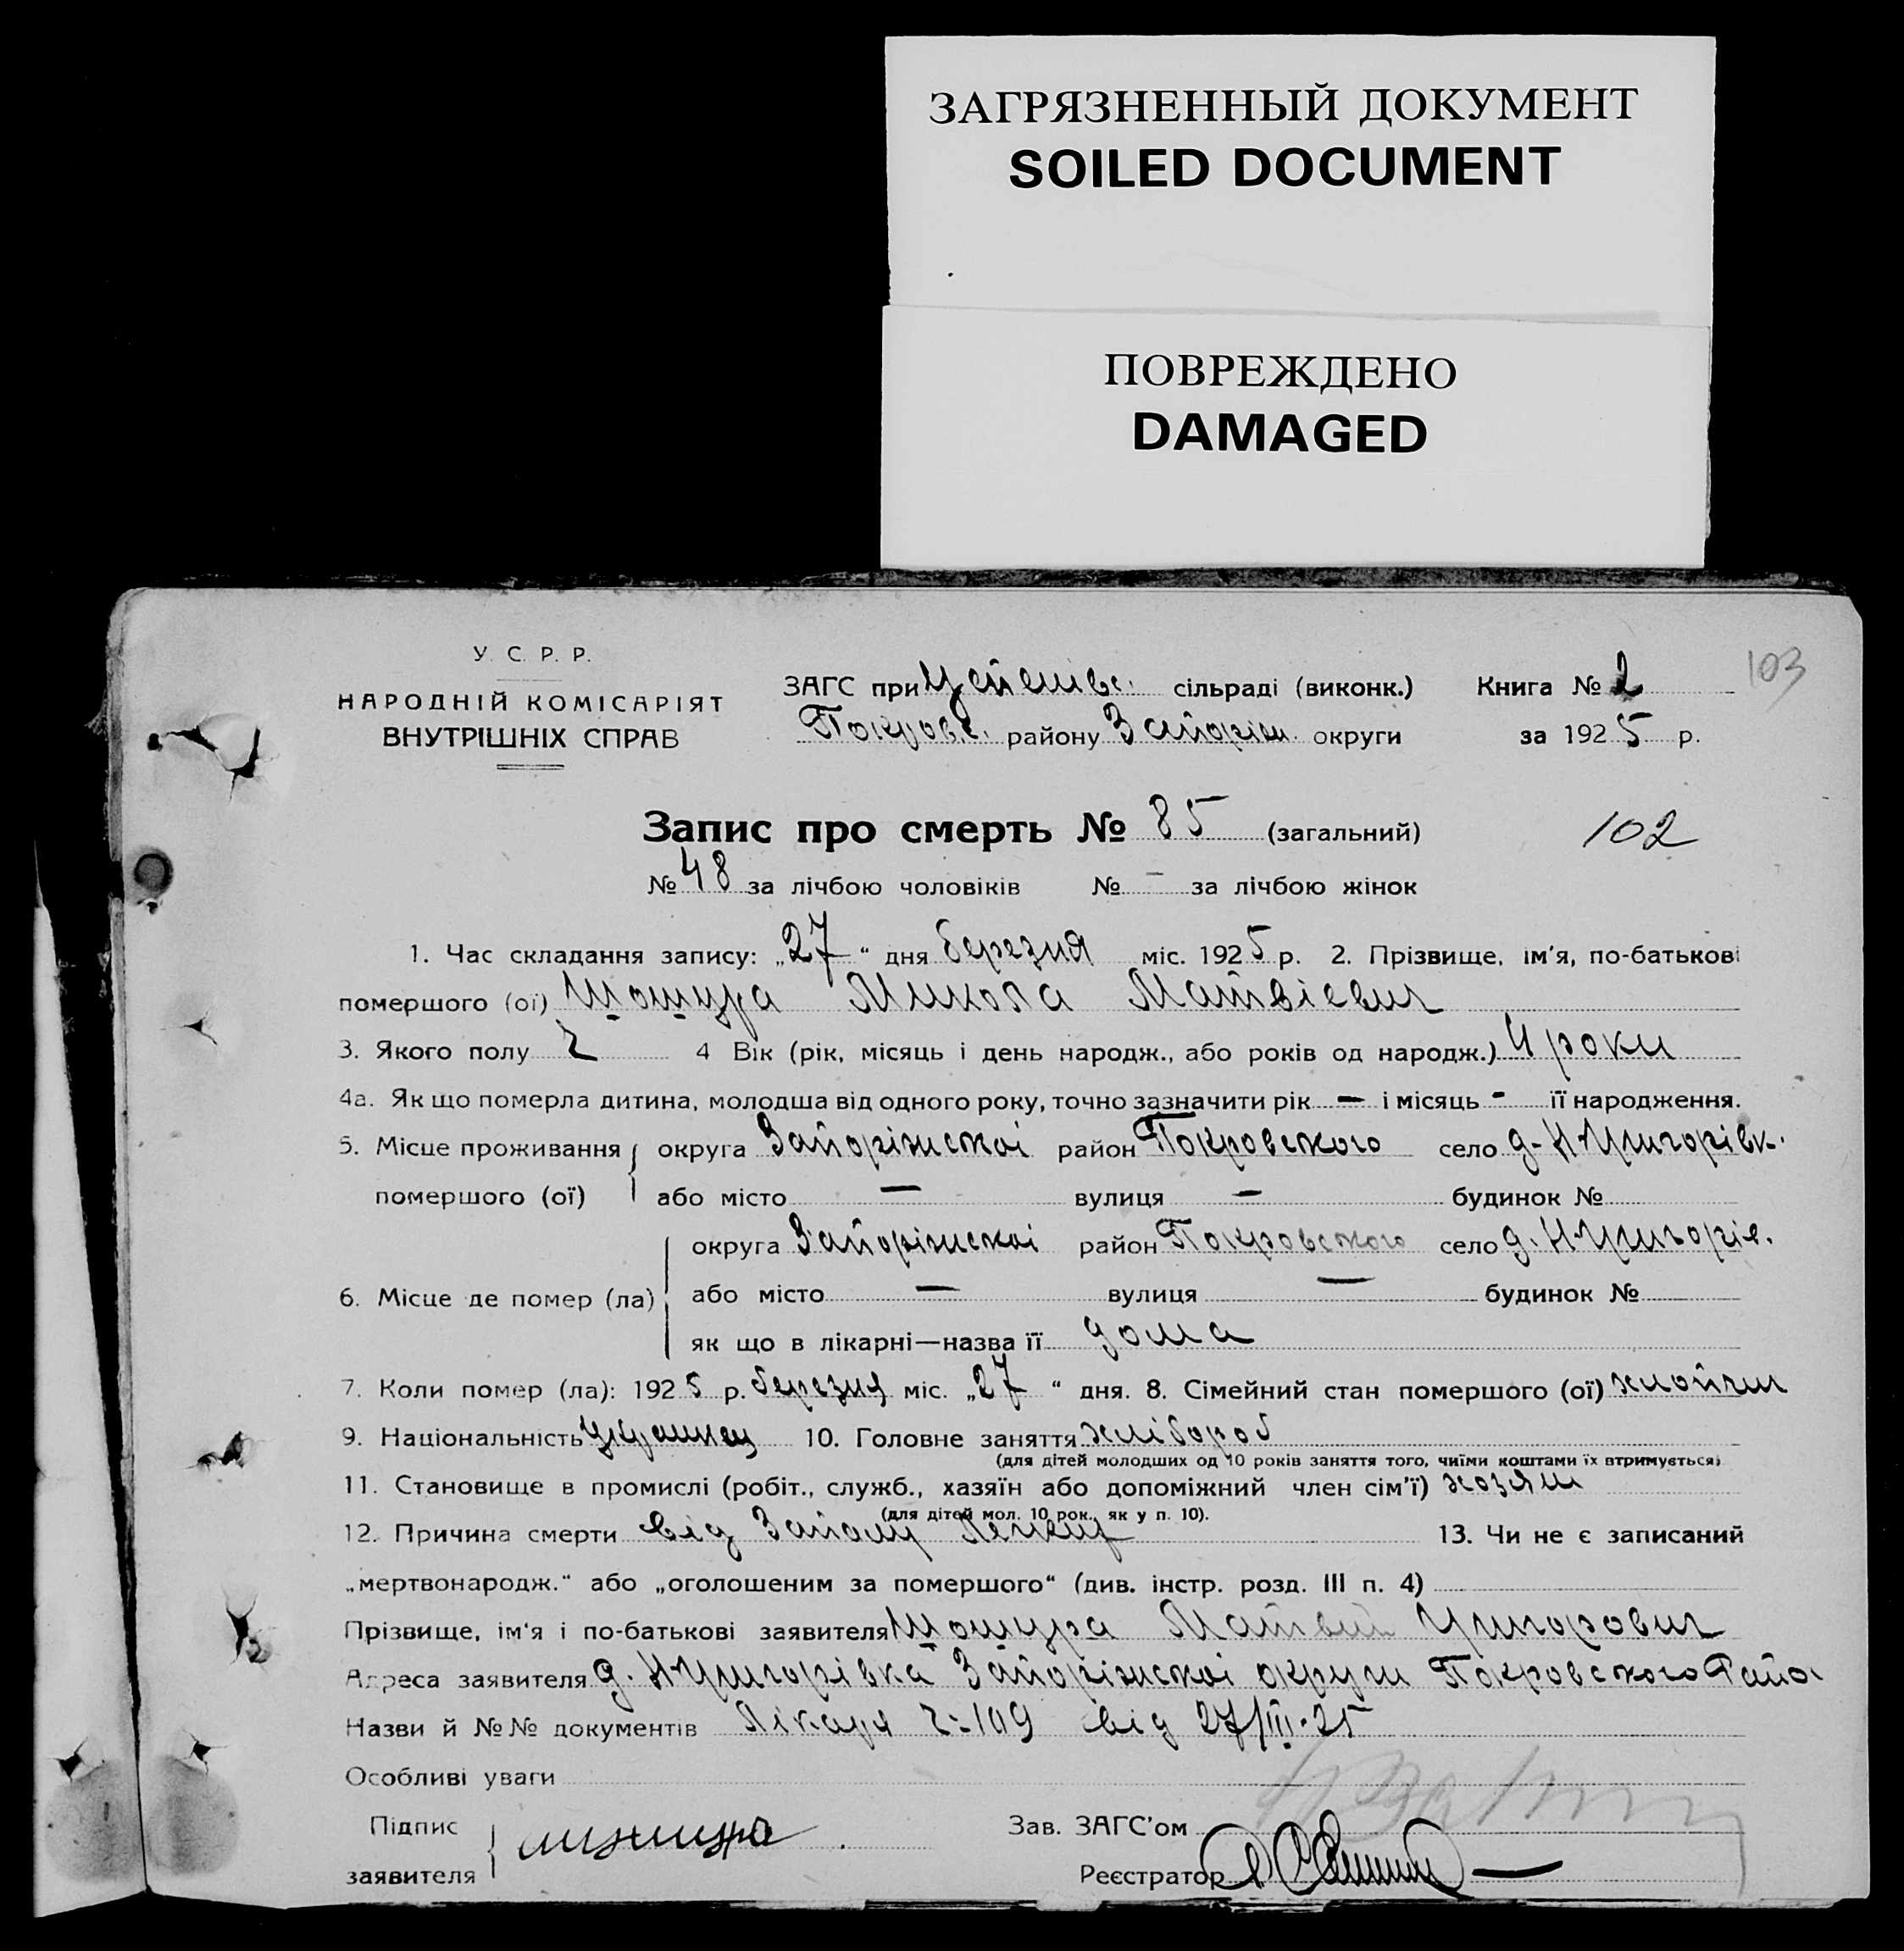 ЗАГРЯЗНЕННЫЙ ДОКУМЕНТ
SOILED DOCUMENT
ПОВРЕЖДЕНО
DAMAGED
У. С. Р. Р.
НАРОДНІЙ КОМІСАРІЯТ
ВНУТРІШНІХ СПРАВ
103
ЗАГС при сільраді (виконк.) Книга № 2
Покровс. району Запоріж. округи за 1925 р.
Запис про смерть № 85 (загальний) 102
№ 48 за лічбою чоловіків № - за лічбою жінок
1. Час складання запису: „27“ дня березня міс. 1925 р. 2. Прізвище, ім'я, по-батькові
помершого (ої) Микола Матвієвич
3. Якого полу ч 4 Вік (рік, місяць і день народж., або років од народж.) 4 роки
4а. Як що померла дитина, молодша від одного року, точно зазначити рік — і місяць - її народження.
5. Місце проживання помершого (ої) округа Запоріжскої район Покровського село д-Н-Григорівк.
або місто — вулиця — будинок №
6. Місце де помер (ла) округа Запоріжскої район Покровського село д. Н-Григорів.
або місто — вулиця — будинок №
як що в лікарні—назва її дома
7. Коли помер (ла): 1925 р. березня міс. „27“ дня. 8. Сімейний стан помершого (ої)
9. Національність Украинец 10. Головне заняття хлібороб
(для дітей молодших од 10 років заняття того, чиїми коштами їх втримується)
11. Становище в промислі (робіт., служб., хазяїн або допоміжний член сім'ї) хозяин
(для дітей мол. 10 рок., як у п. 10).
12. Причина смерти від Запалу 13. Чи не є записаний
„мертвонародж.“ або „оголошеним за помершого“ (див. інстр. розд. III п. 4)
Прізвище, ім'я і по-батькові заявителя Матвий Григорович
Адреса заявителя д. Н-Григорівка Запоріжскої округи Покровского Райо
Назви й №№ документів Лікаря ч-109 від 27/III-25
Особливі уваги
Підпис заявителя
Зав. ЗАГС'ом
Реєстратор